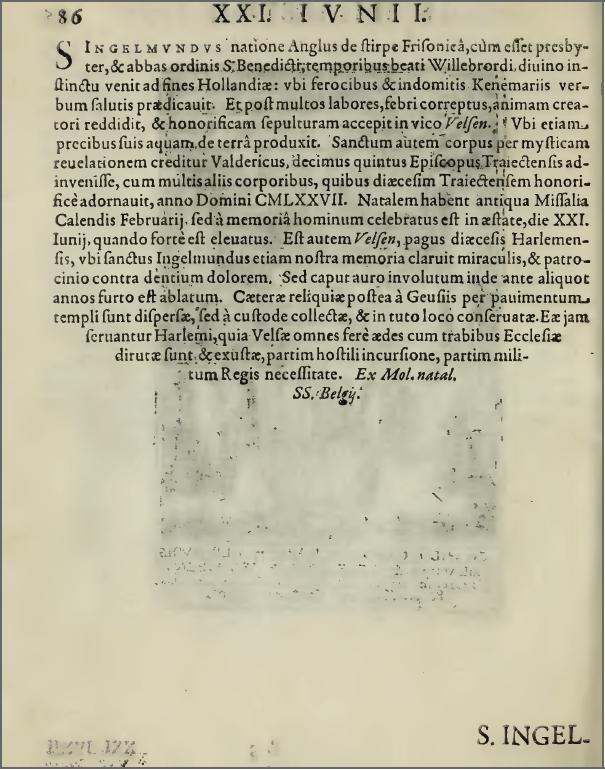 86 XXI. IVNII.
SINGELMVNDVS natione Anglus de stirpe Frisonicâ, cùm esset presby-
ter, & abbas ordinis S. Benedicti, temporibus beati Willebrordi, diuino in-
stinctu venit ad fines Hollandiæ: vbi ferocibus & indomitis Kenemariis ver-
bum salutis prædicauit. Et post multos labores, febri correptus, animam crea-
tori reddidit, & honorificam sepulturam accepit in vico Velsen. Vbi etiam
precibus suis aquam de terrâ produxit. Sanctum autem corpus per mysticam
reuelationem creditur Valdericus, decimus quintus Episcopus Traiectensis ad-
inuenisse, cum multis aliis corporibus, quibus diæcesim Traiectensem honori-
ficè adornauit, anno Domini CMLXXVII. Natalem habent antiqua Missalia
Calendis Februarij. sed à memoriâ hominum celebratus est in æstate, die XXI.
Iunij, quando fortè est eleuatus. Est autem Velsen, pagus diæcesis Harlemen-
sis, vbi sanctus Ingelmundus etiam nostra memoria claruit miraculis, & patro-
cinio contra dentium dolorem. Sed caput auro inuolutum inde ante aliquot
annos furto est ablatum. Cæteræ reliquiæ postea à Geusiis per pauimentum
templi sunt dispersæ, sed à custode collectæ, & in tuto loco conseruatæ. Eæ jam
seruantur Harlemi, quia Velsæ omnes ferè ædes cum trabibus Ecclesiæ
dirutæ sunt & exustæ, partim hostili incursione, partim mili-
tum Regis necessitate. Ex Mol. natal.
SS. Belgij.
S. INGEL-